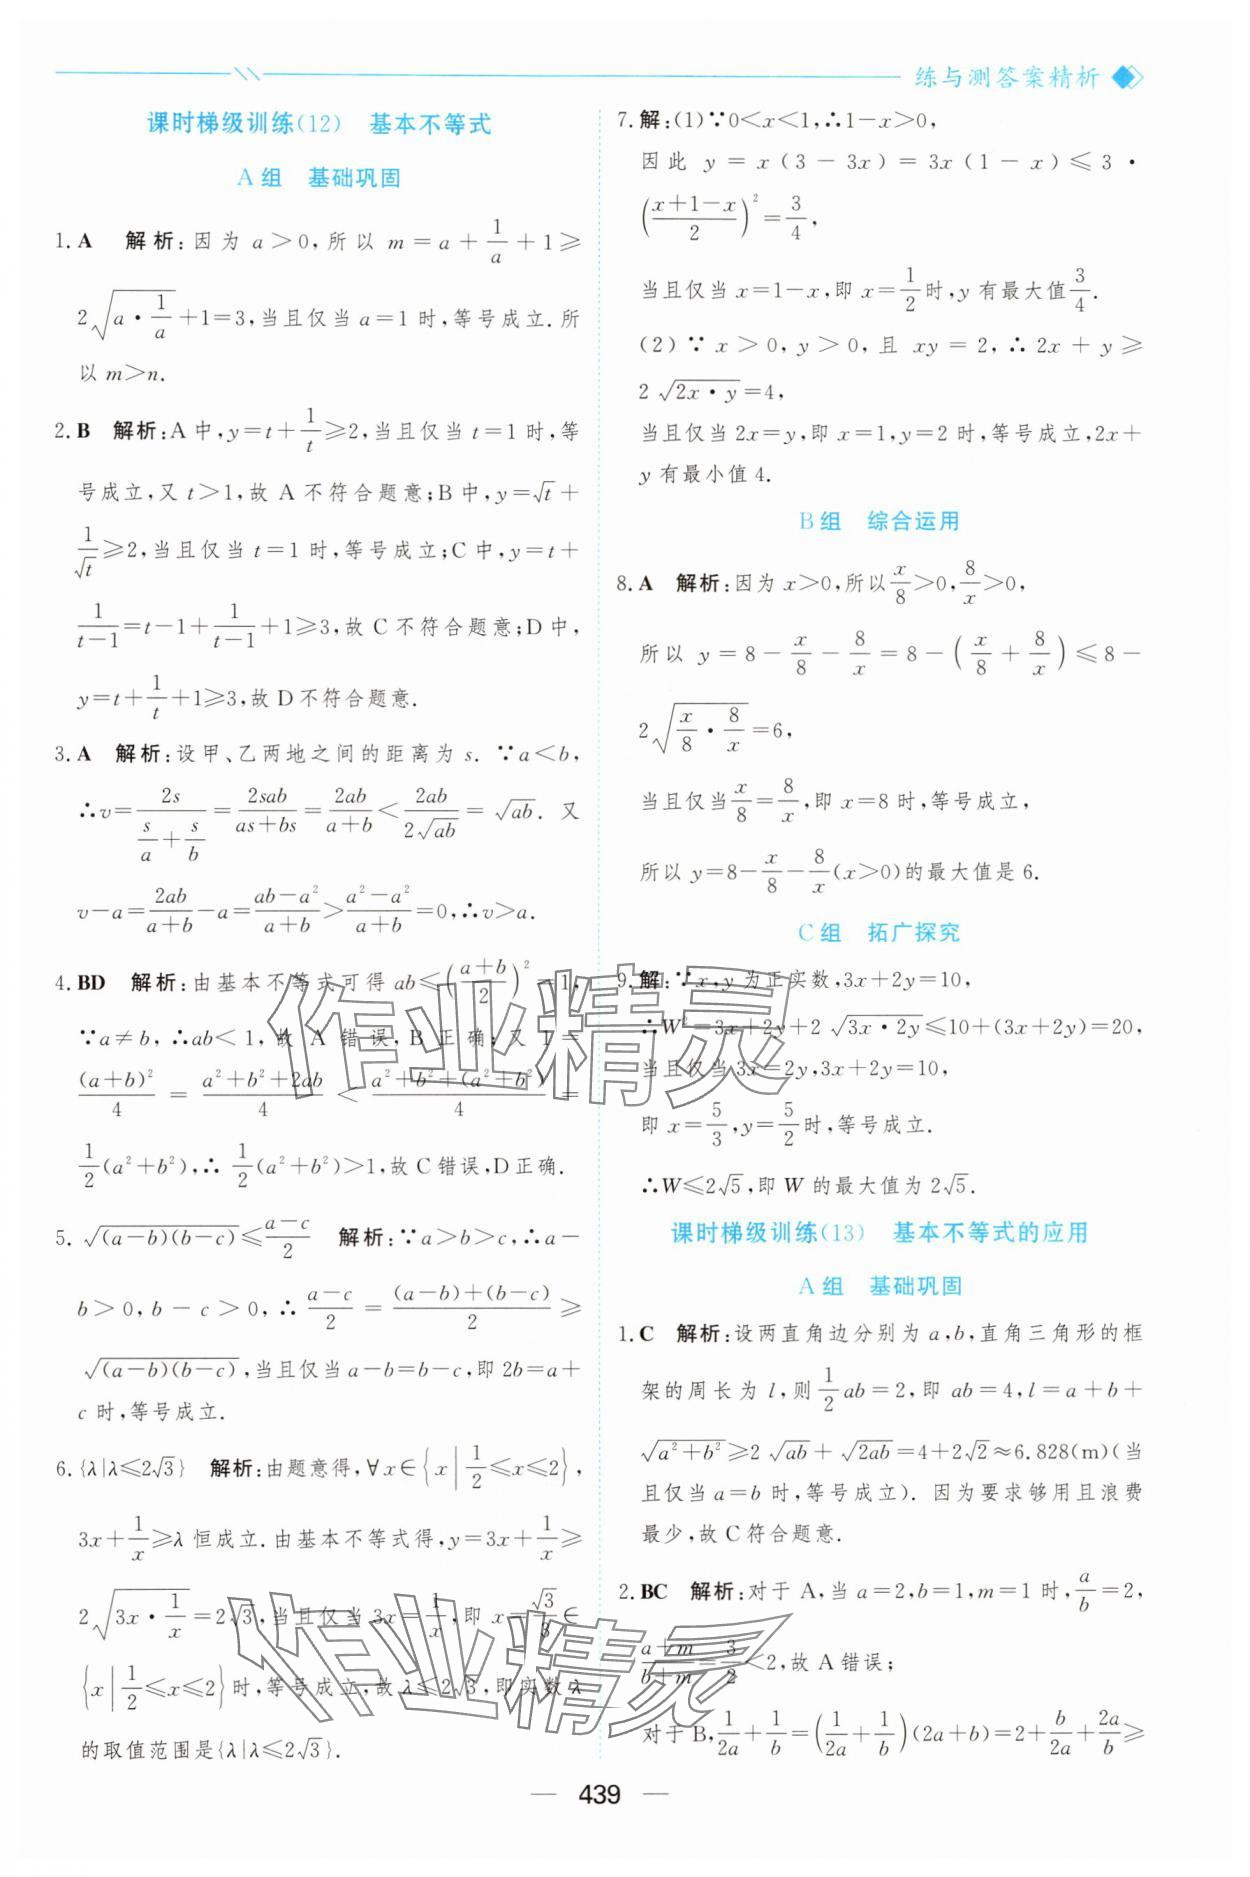 练与测答案精析
课时梯级训练(12) 基本不等式
A组 基础巩固
1. A 解析:因为 a>0,所以 m=a+1/a+1≥
2√(a·1/a)+1=3,当且仅当 a=1 时,等号成立.所
以 m>n.
2. B 解析:A 中,y=t+1/t≥2,当且仅当 t=1 时,等
号成立,又 t>1,故 A 不符合题意;B 中,y=√t+
1/√t≥2,当且仅当 t=1 时,等号成立;C 中,y=t+
1/(t-1)=t-1+1/(t-1)+1≥3,故 C 不符合题意;D 中,
y=t+1/t+1≥3,故 D 不符合题意.
3. A 解析:设甲、乙两地之间的距离为 s. ∵a<b,
∴v=2s/(s/a+s/b)=2sab/(as+bs)=2ab/(a+b)<2ab/(2√(ab))=√(ab). 又
v-a=2ab/(a+b)-a=(ab-a²)/(a+b)>(a²-a²)/(a+b)=0,∴v>a.
4. BD 解析:由基本不等式可得 ab≤((a+b)/2)²=1,
∵a≠b,∴ab<1,故 A 错误,B 正确;又 1=
(a+b)²/4=(a²+b²+2ab)/4<(a²+b²+(a²+b²))/4=
1/2(a²+b²),∴1/2(a²+b²)>1,故 C 错误,D 正确.
5. √((a-b)(b-c))≤(a-c)/2 解析:∵a>b>c,∴a-
b>0,b-c>0,∴(a-c)/2=((a-b)+(b-c))/2≥
√((a-b)(b-c)),当且仅当 a-b=b-c,即 2b=a+
c 时,等号成立.
6. {λ|λ≤2√3} 解析:由题意得,∀x∈{x|1/2≤x≤2},
3x+1/x≥λ 恒成立.由基本不等式得,y=3x+1/x≥
2√(3x·1/x)=2√3,当且仅当 3x=1/x,即 x=√3/3∈
{x|1/2≤x≤2}时,等号成立,故 λ≤2√3,即实数 λ
的取值范围是{λ|λ≤2√3}.
7. 解:(1)∵0<x<1,∴1-x>0,
因此 y=x(3-3x)=3x(1-x)≤3·
((x+1-x)/2)²=3/4,
当且仅当 x=1-x,即 x=1/2时,y 有最大值3/4.
(2)∵x>0,y>0,且 xy=2,∴2x+y≥
2√(2x·y)=4,
当且仅当 2x=y,即 x=1,y=2 时,等号成立,2x+
y 有最小值 4.
B组 综合运用
8. A 解析:因为 x>0,所以x/8>0,8/x>0,
所以 y=8-x/8-8/x=8-(x/8+8/x)≤8-
2√(x/8·8/x)=6,
当且仅当x/8=8/x,即 x=8 时,等号成立,
所以 y=8-x/8-8/x(x>0)的最大值是 6.
C组 拓广探究
9. 解:∵x,y 为正实数,3x+2y=10,
∴W²=3x+2y+2√(3x·2y)≤10+(3x+2y)=20,
当且仅当 3x=2y,3x+2y=10,
即 x=5/3,y=5/2时,等号成立.
∴W≤2√5,即 W 的最大值为 2√5.
课时梯级训练(13) 基本不等式的应用
A组 基础巩固
1. C 解析:设两直角边分别为 a,b,直角三角形的框
架的周长为 l,则1/2ab=2,即 ab=4,l=a+b+
√(a²+b²)≥2√(ab)+√(2ab)=4+2√2≈6.828(m)(当
且仅当 a=b 时,等号成立). 因为要求够用且浪费
最少,故 C 符合题意.
2. BC 解析:对于 A,当 a=2,b=1,m=1 时,a/b=2,
(a+m)/(b+m)=3/2<2,故 A 错误;
对于 B,1/2a+1/b=(1/2a+1/b)(2a+b)=2+b/2a+2a/b≥
— 439 —
作业精灵
作业精灵